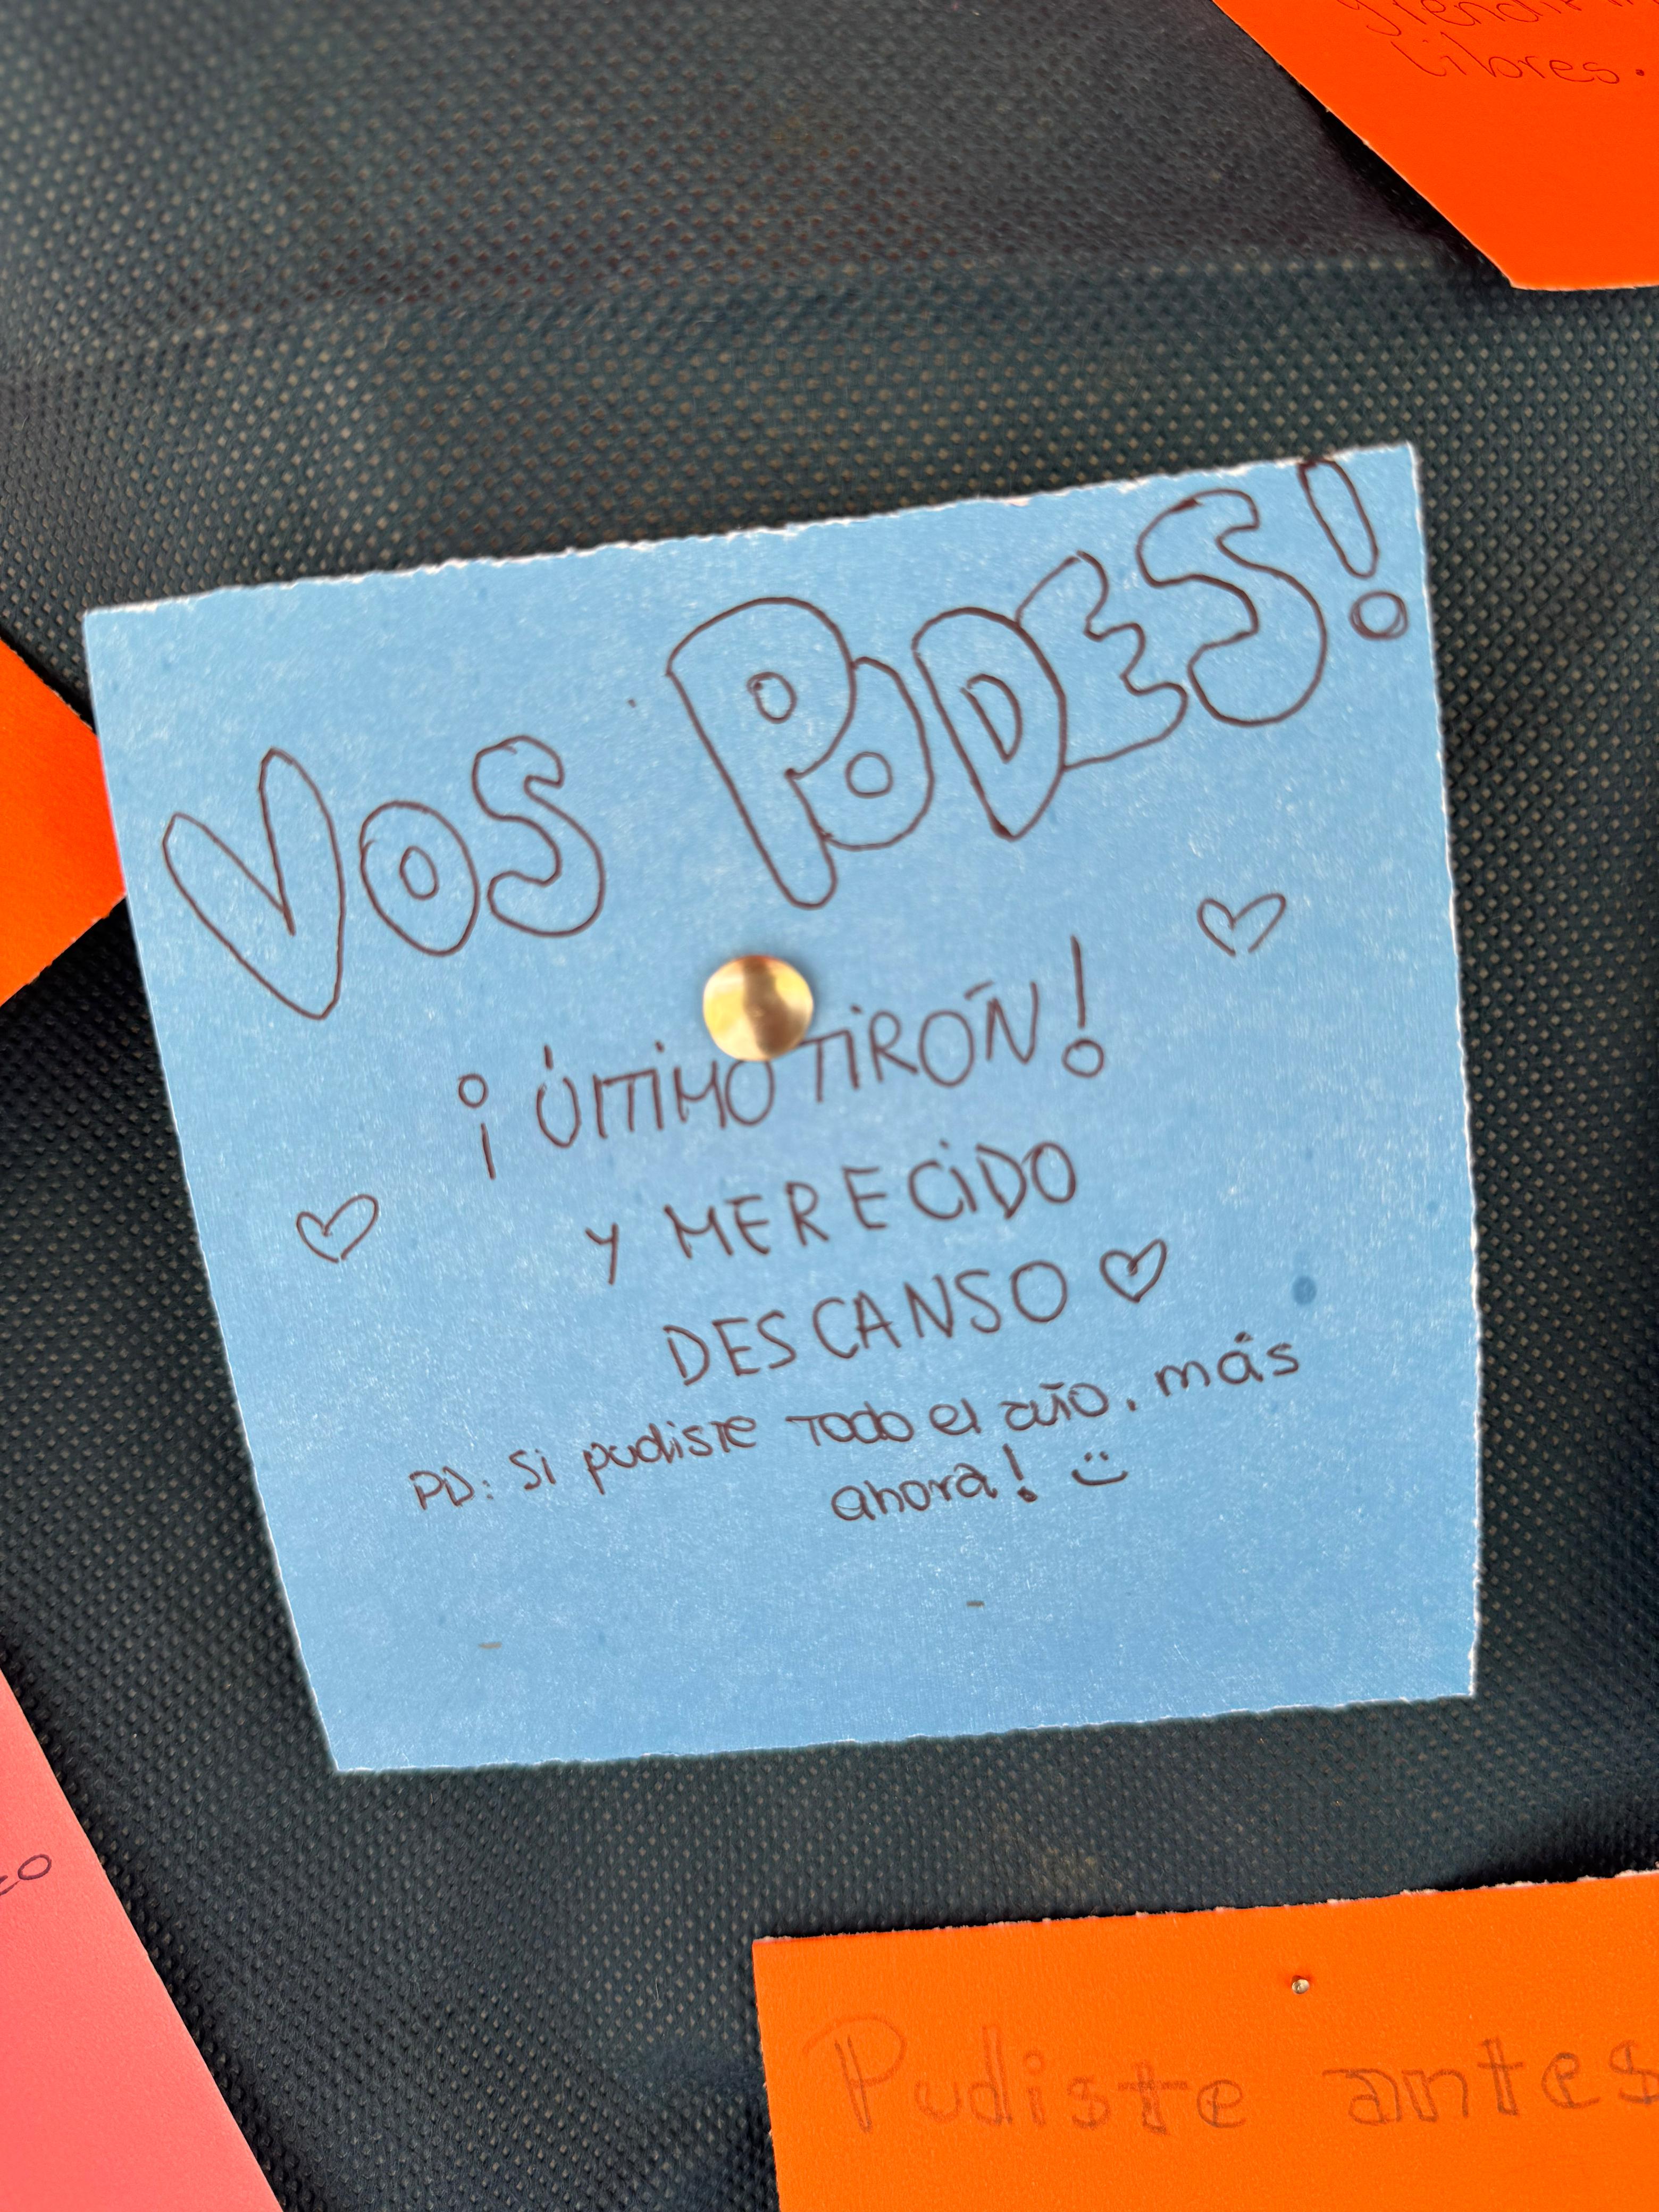 libres.
VOS PODES!
¡ÚlTiMO TiRÓN!
Y MERECiDO
DESCANSO
PD: Si pudiste todo el año, más
ahora! :)
Pudiste antes